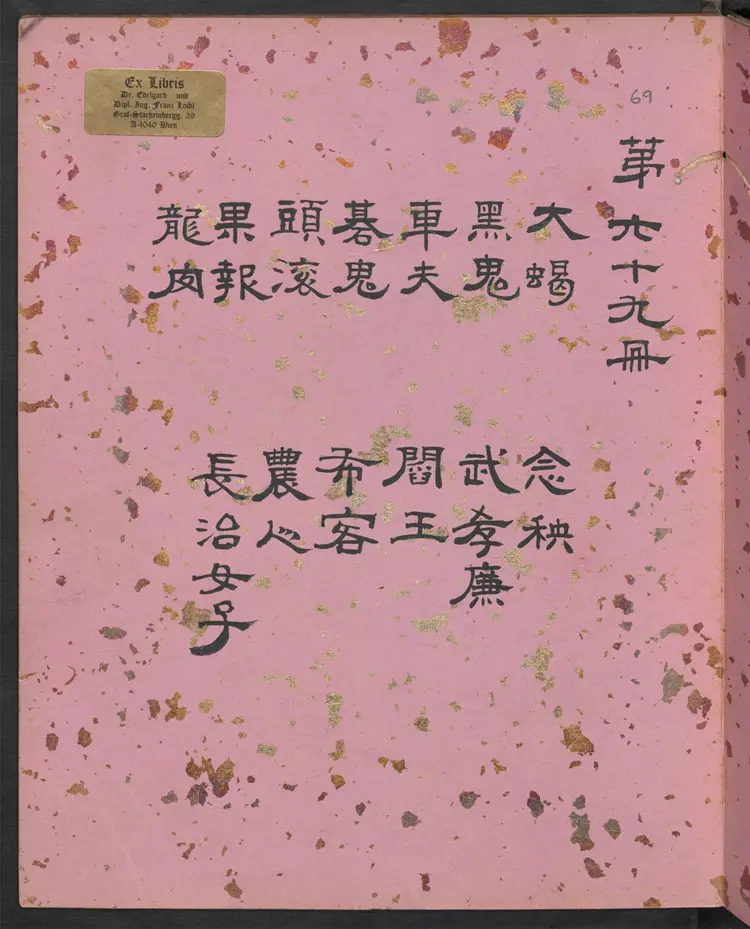 Ex Libris
Dr. Edelgard und
Dipl. Ing. Franz Loibl
Graf-Starhembergg. 39
A-1040 Wien
69
苐六十九冊
大蝎
黑鬼
車夫
碁鬼
頭滚
果報
龍肉
念秧
武孝廉
閻王
布客
農人
長治女子